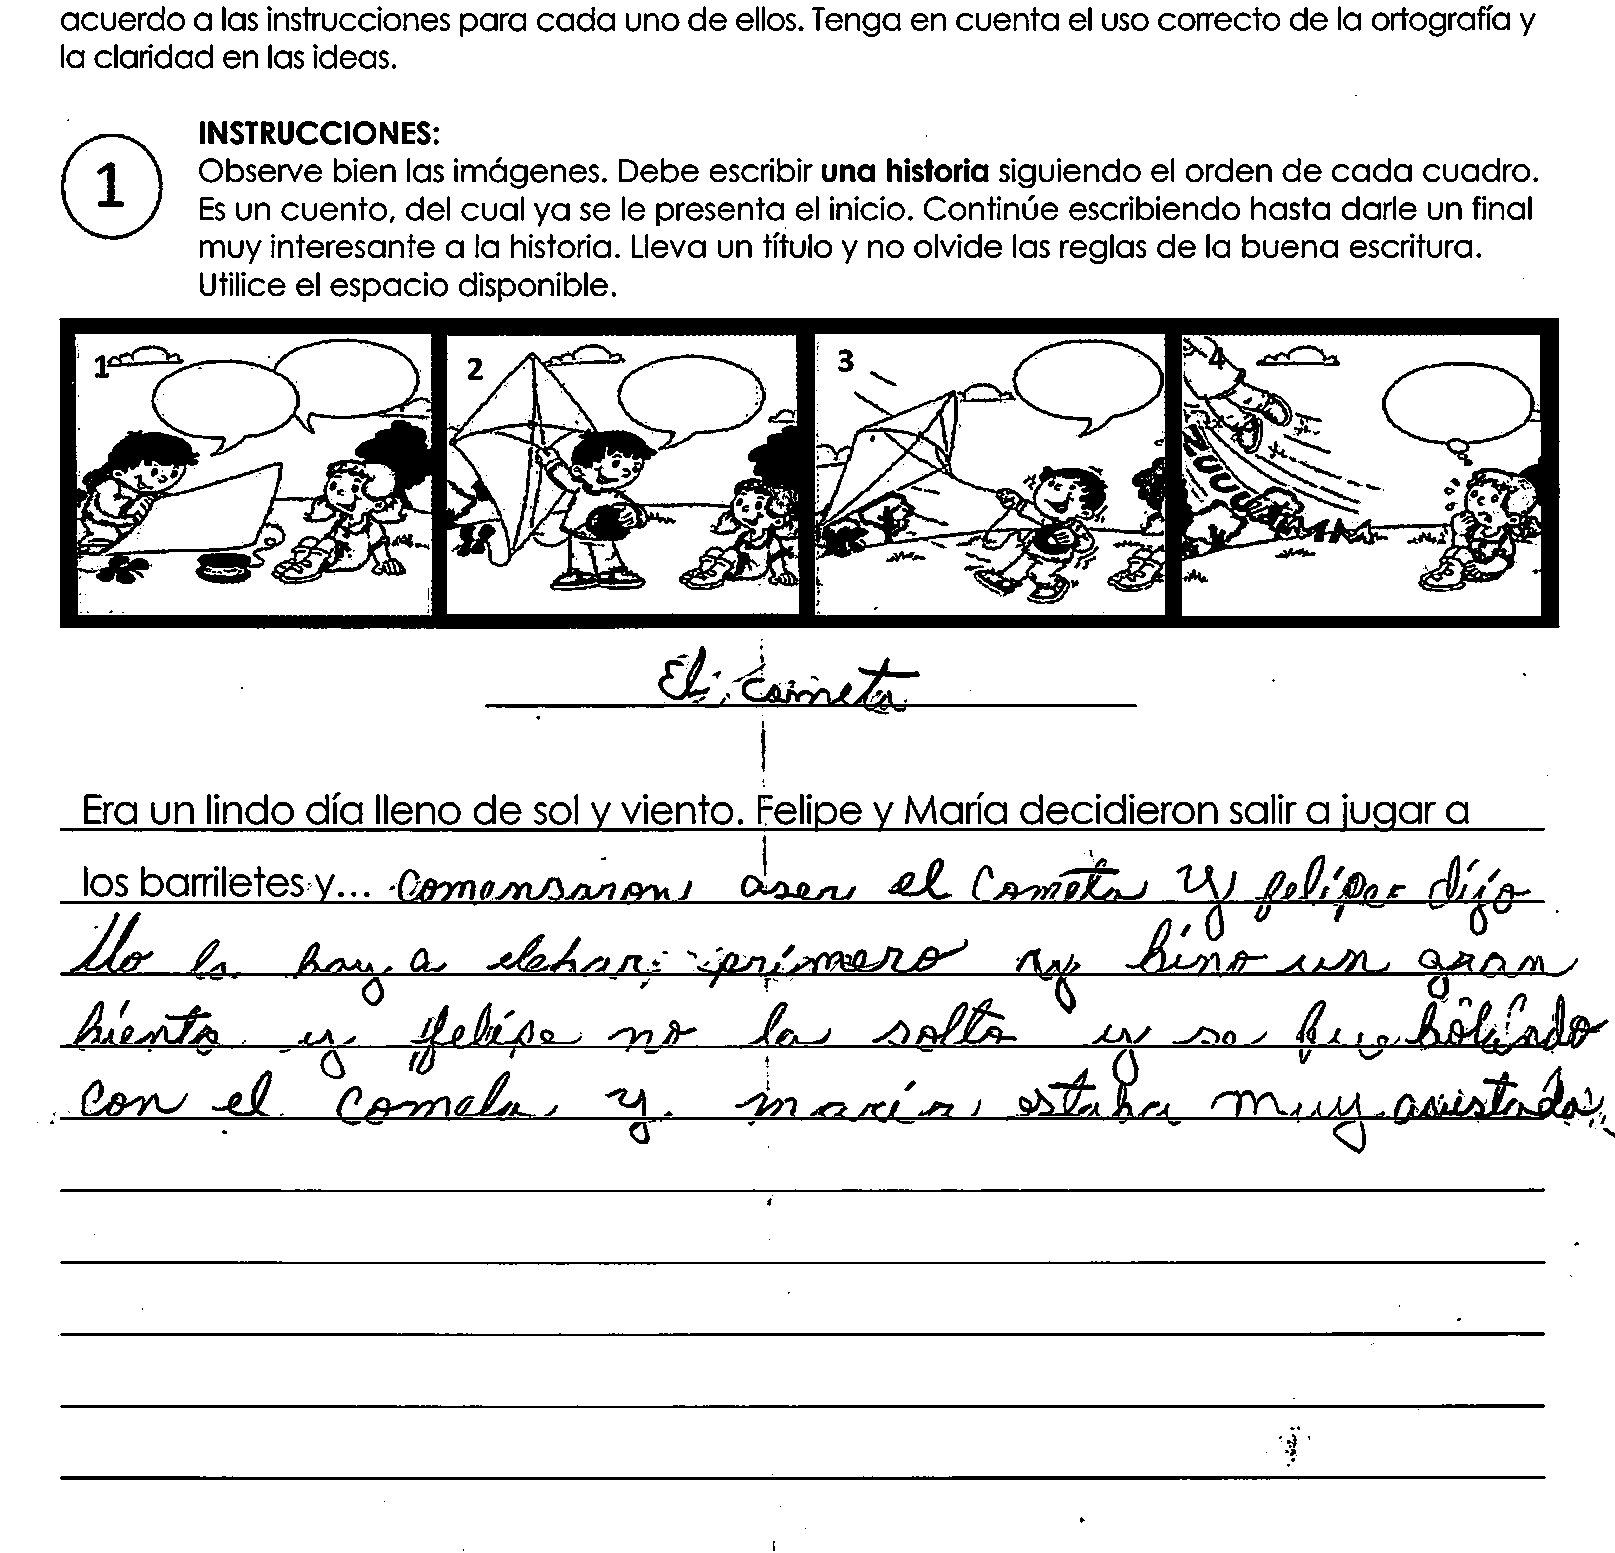 acuerdo a las instrucciones para cada uno de ellos. Tenga en cuenta el uso correcto de la ortografía y
la claridad en las ideas.
1
INSTRUCCIONES:
Observe bien las imágenes. Debe escribir una historia siguiendo el orden de cada cuadro.
Es un cuento, del cual ya se le presenta el inicio. Continúe escribiendo hasta darle un final
muy interesante a la historia. Lleva un título y no olvide las reglas de la buena escritura.
Utilice el espacio disponible.
1 2 3 4
ZUUUU
El cometa
Era un lindo día lleno de sol y viento. Felipe y María decidieron salir a jugar a
los barriletes y... comensaron aser el cometa y felipe dijo
Yo la boy a elebar primero y bino un gran
biento y felipe no la solto y se fue bolando
con el cometa y maria estaba muy asustada